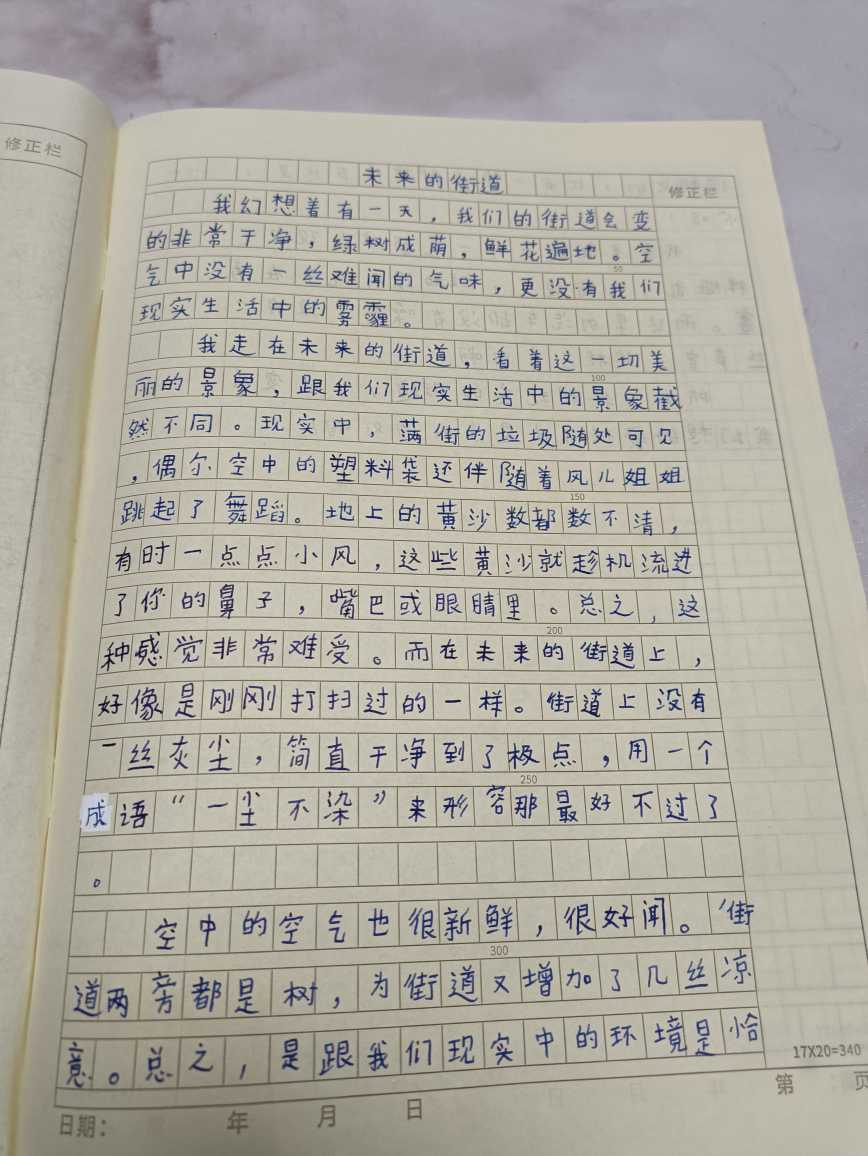 修正栏
未来的街道
修正栏
我幻想着有一天，我们的街道会变
的非常干净，绿树成荫，鲜花遍地。空
50
气中没有一丝难闻的气味，更没有我们
现实生活中的雾霾。
我走在未来的街道，看着这一切美
100
丽的景象，跟我们现实生活中的景象截
然不同。现实中，满街的垃圾随处可见
，偶尔空中的塑料袋还伴随着风儿姐姐
150
跳起了舞蹈。地上的黄沙数都数不清，
有时一点点小风，这些黄沙就趁机流进
了你的鼻子，嘴巴或眼睛里。总之，这
200
种感觉非常难受。而在未来的街道上，
好像是刚刚打扫过的一样。街道上没有
一丝灰尘，简直干净到了极点，用一个
250
成语“一尘不染”来形容那最好不过了
。
空中的空气也很新鲜，很好闻。街
300
道两旁都是树，为街道又增加了几丝凉
意。总之，是跟我们现实中的环境是恰
17X20=340
日期： 年 月 日 第 页